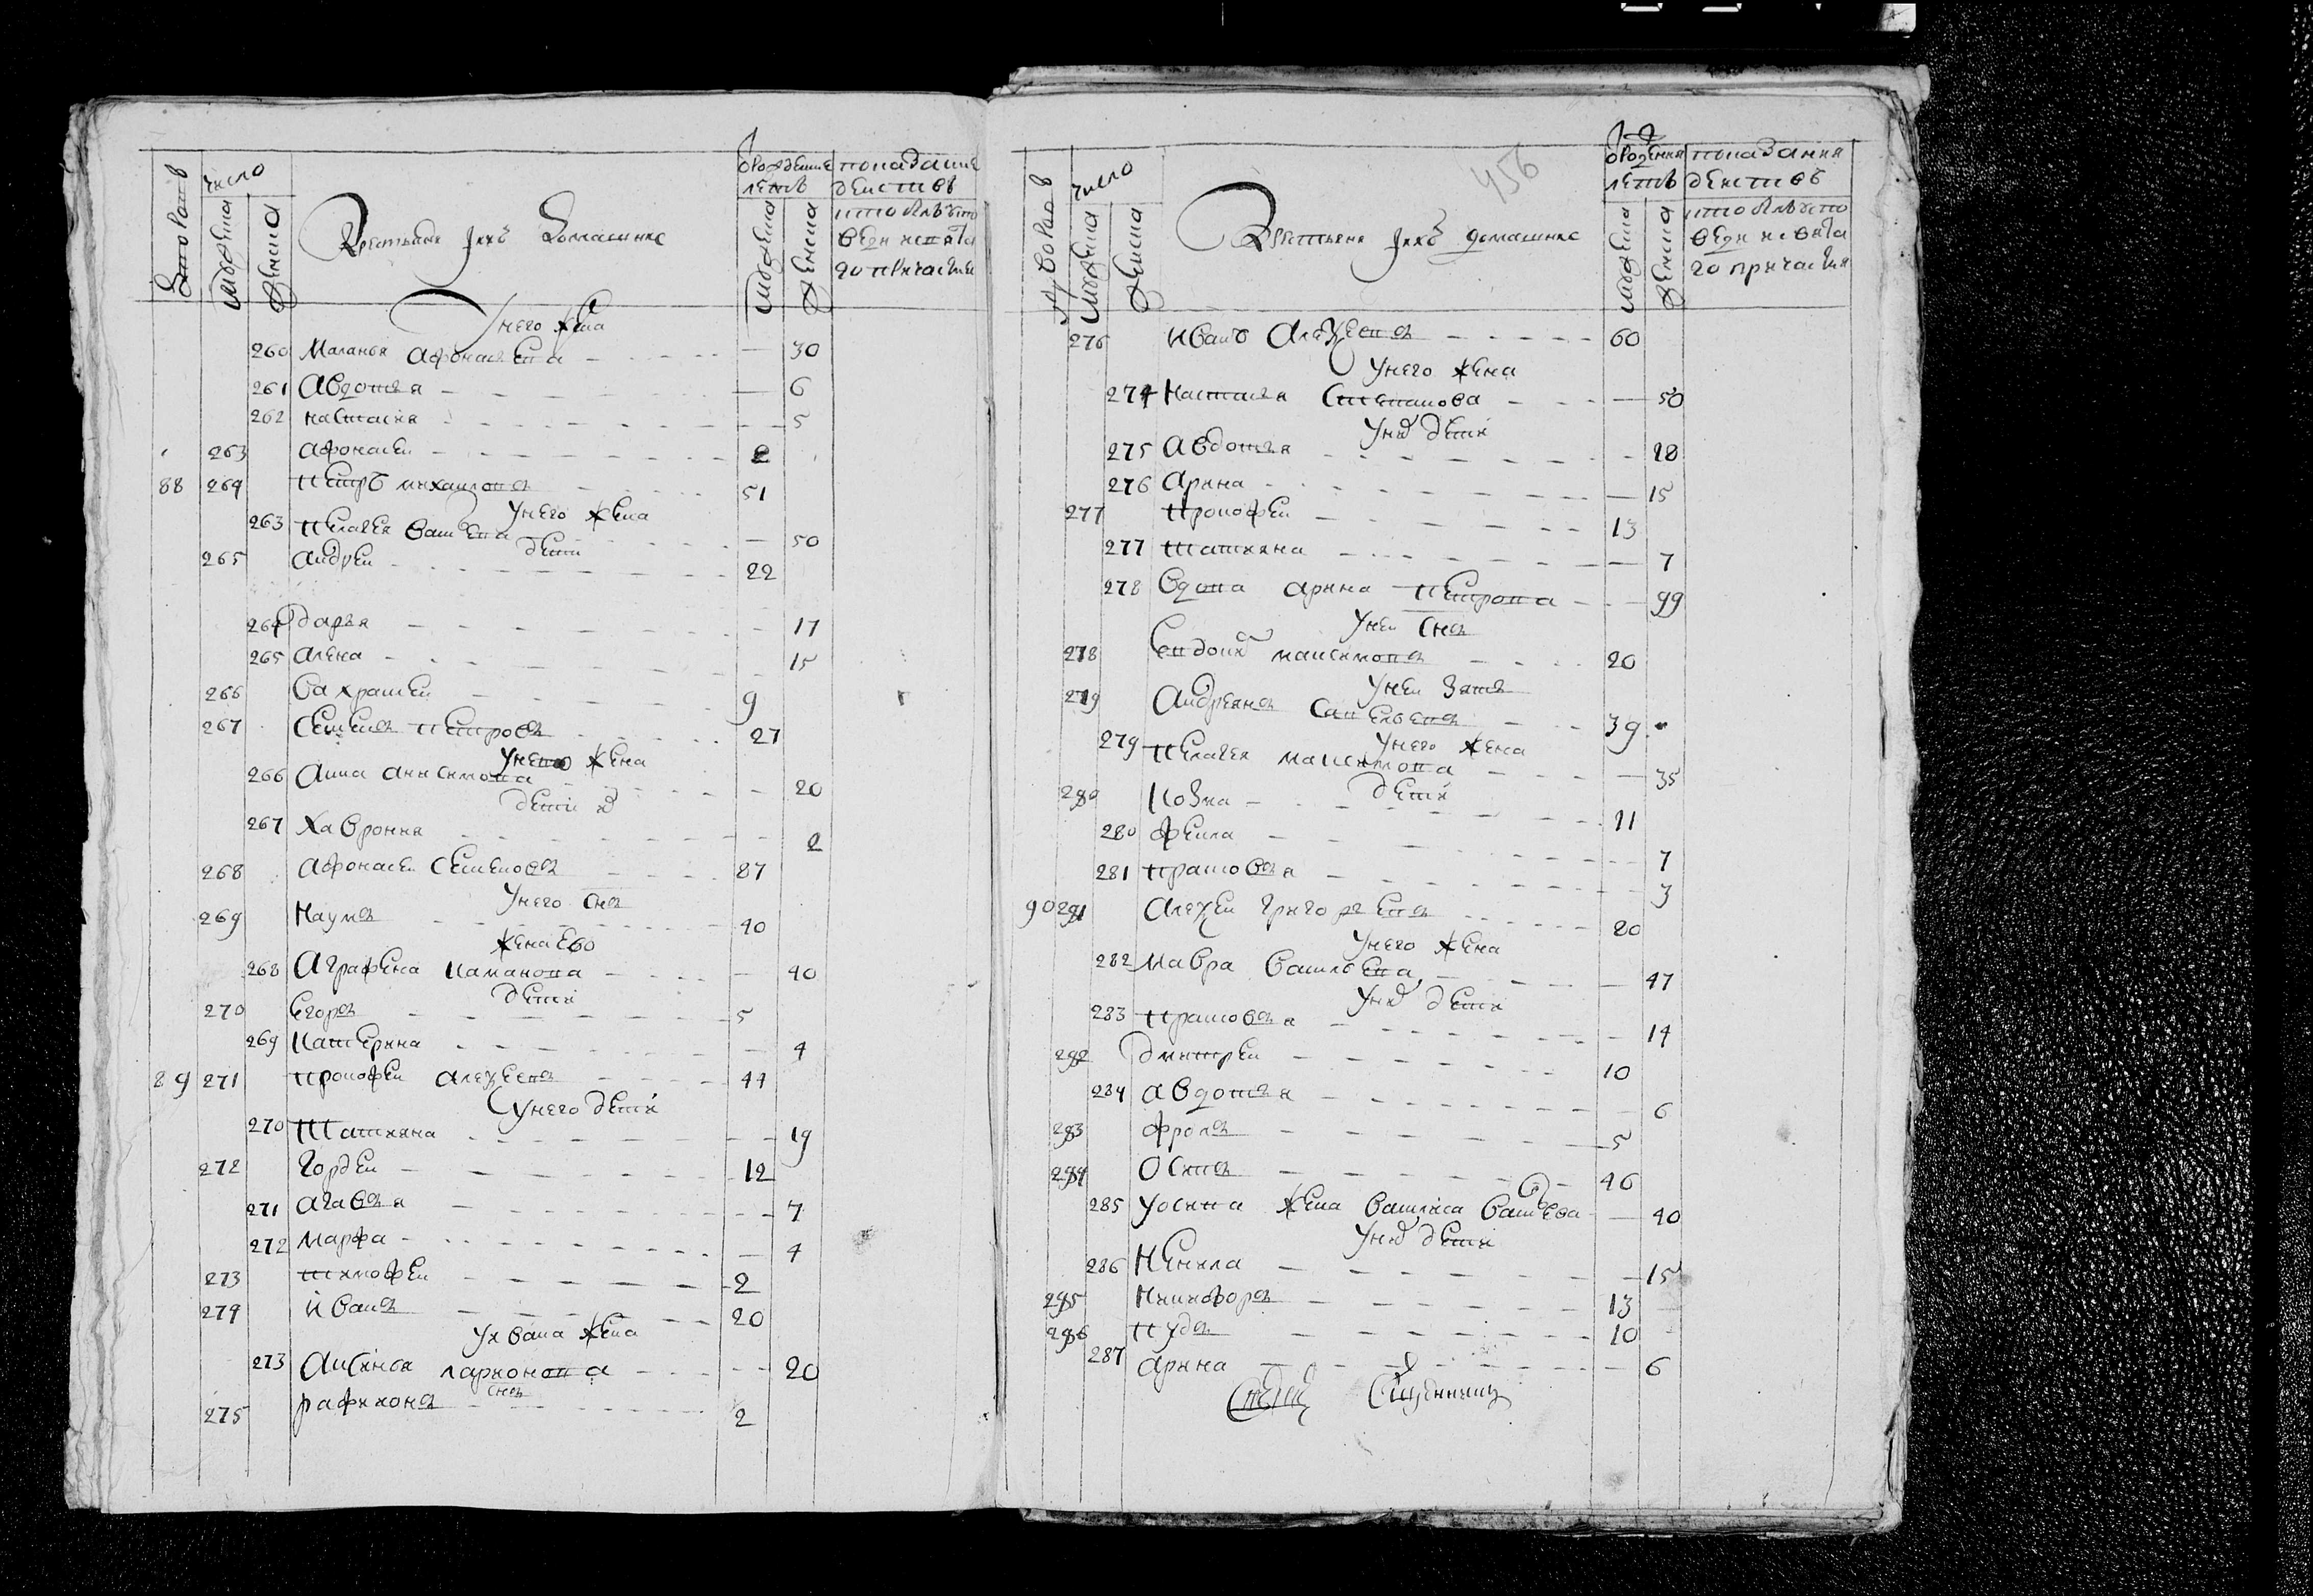 дворовъ число Крестьяне и ихъ домашние от рождения летъ показание действ
мужеска женска мужеска женска кто был у исповеди и святаго причастия
У него жена
260 Маланья Афонасьева 30
261 Авдотья 6
262 Настасия 5
263 Афонасеи 2
88 264 Петръ Михаилов 51
У него жена
263 Пелагея Васильева 50
дети
265 Андреи 22
264 Дарья 17
265 Алена 15
266 Вахрамеи 9
267 Семенъ Петровъ 27
У него жена
266 Анна Анисимова 20
дети их
267 Хаврония 2
268 Афонасеи Семеновъ 87
У него снъ
269 Наумъ 40
жена ево
268 Аграфена 40
дети
270 Егоръ 5
269 Катерина 4
89 271 Прокофеи Алексеевъ 44
У него дети
270 Татияна 19
272 Гордеи 12
271 Агавья 7
272 Марфа 4
273 Тимофеи 2
274 Иванъ 20
У Ивана жена
273 Аксинья Ларионова 20
снъ
275 2
456
дворовъ число Крестьяне и ихъ домашние от рождения летъ показания действ
мужеска женска мужеска женска кто был у исповеди и святаго причастия
276 Иванъ Алексеевъ 60
У него жена
274 Настасья Степанова 50
У них дети
275 Авдотья 18
276 Арина 15
277 Прокофеи 13
277 Татияна 7
278 Вдова Арина Петрова 99
У неи снъ
278 Евдоким Максимовъ 20
У неи зять
279 Андреянъ Савельевъ 39
У него жена
279 Пелагея Максимова 35
дети
280 Козма 11
280 Фекла 7
281 Прасковья 3
90 281 Алексеи Григорьевъ 20
У него жена
282 Мавра Васильева 47
У них дети
283 Прасковья 14
282 Дмитреи 10
284 Авдотья 6
283 Фролъ 5
284 Осипъ 46
285 У Осипа жена Василиса Васильева 40
У них дети
286 Ненила 15
285 Никифоръ 13
286 Нудъ 10
287 Арина 6